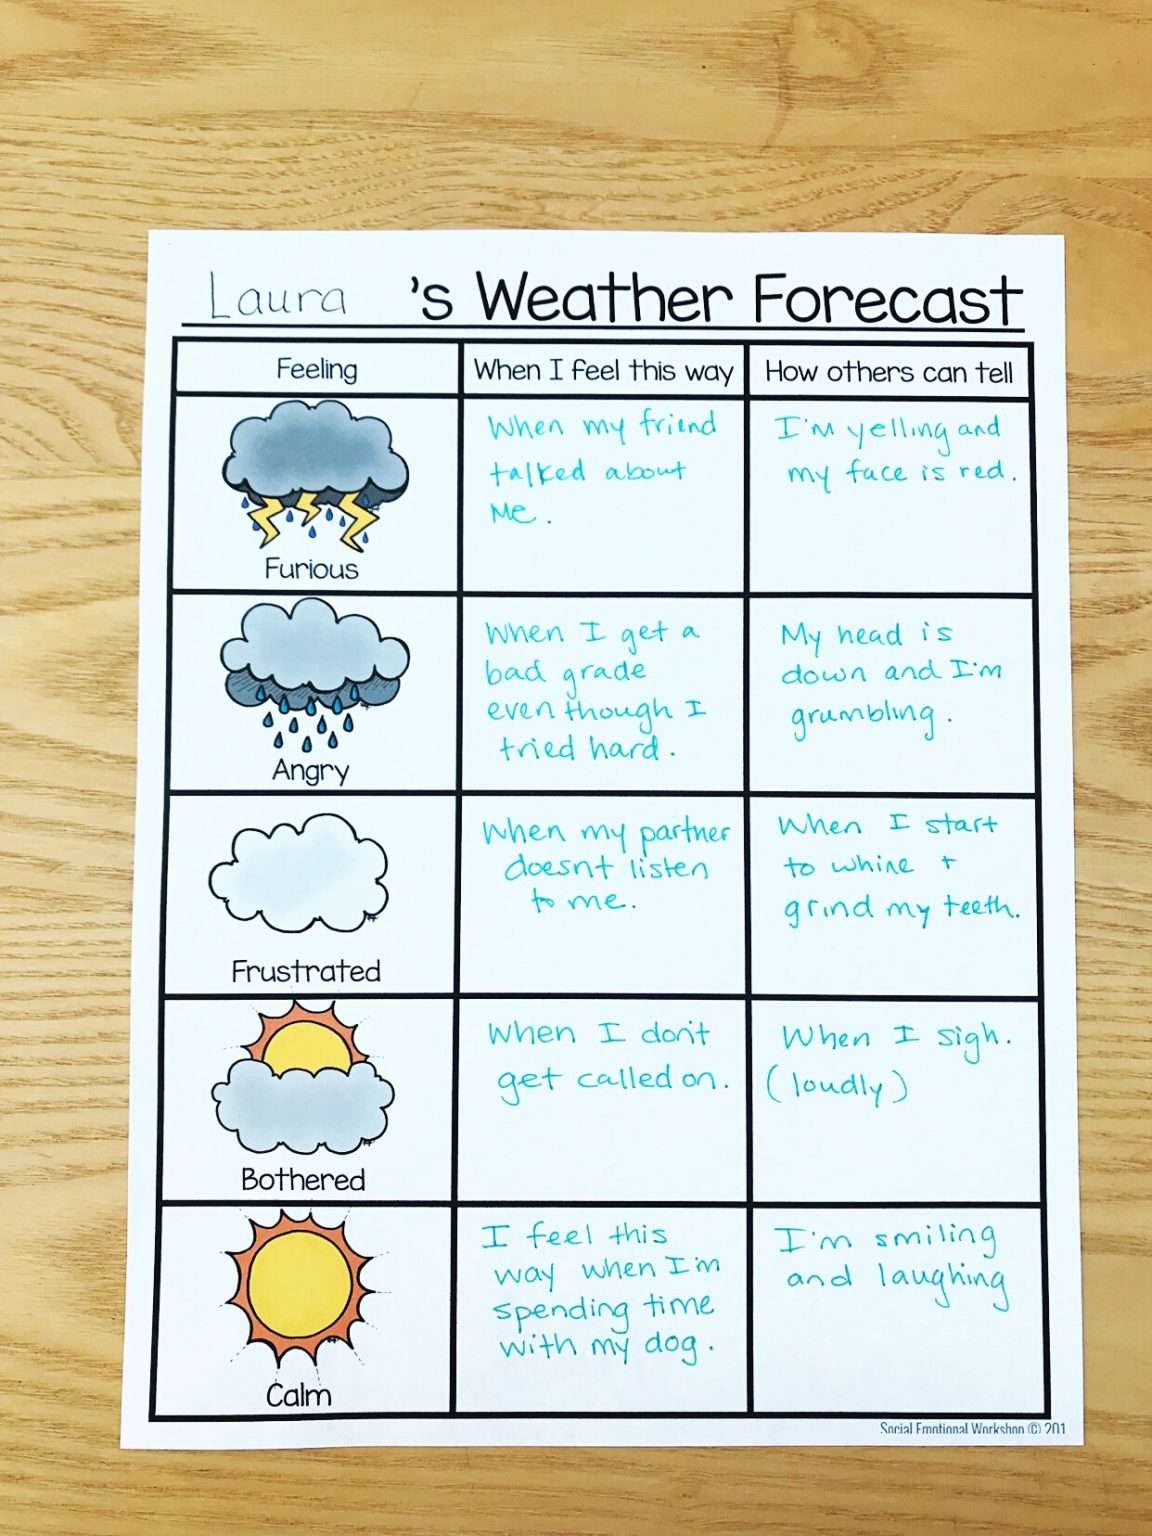 Laura's Weather Forecast
Feeling
When I feel this way
How others can tell
Furious
When my friend
talked about
Me.
I'm yelling and
my face is red.
Angry
When I get a
bad grade
even though I
tried hard.
My head is
down and I'm
grumbling.
Frustrated
When my partner
doesnt listen
to me.
When I start
to whine +
grind my teeth.
Bothered
When I don't
get called on.
When I sigh.
(loudly)
Calm
I feel this
way when I'm
spending time
with my dog.
I'm smiling
and laughing
Social Emotional Workshop © 201